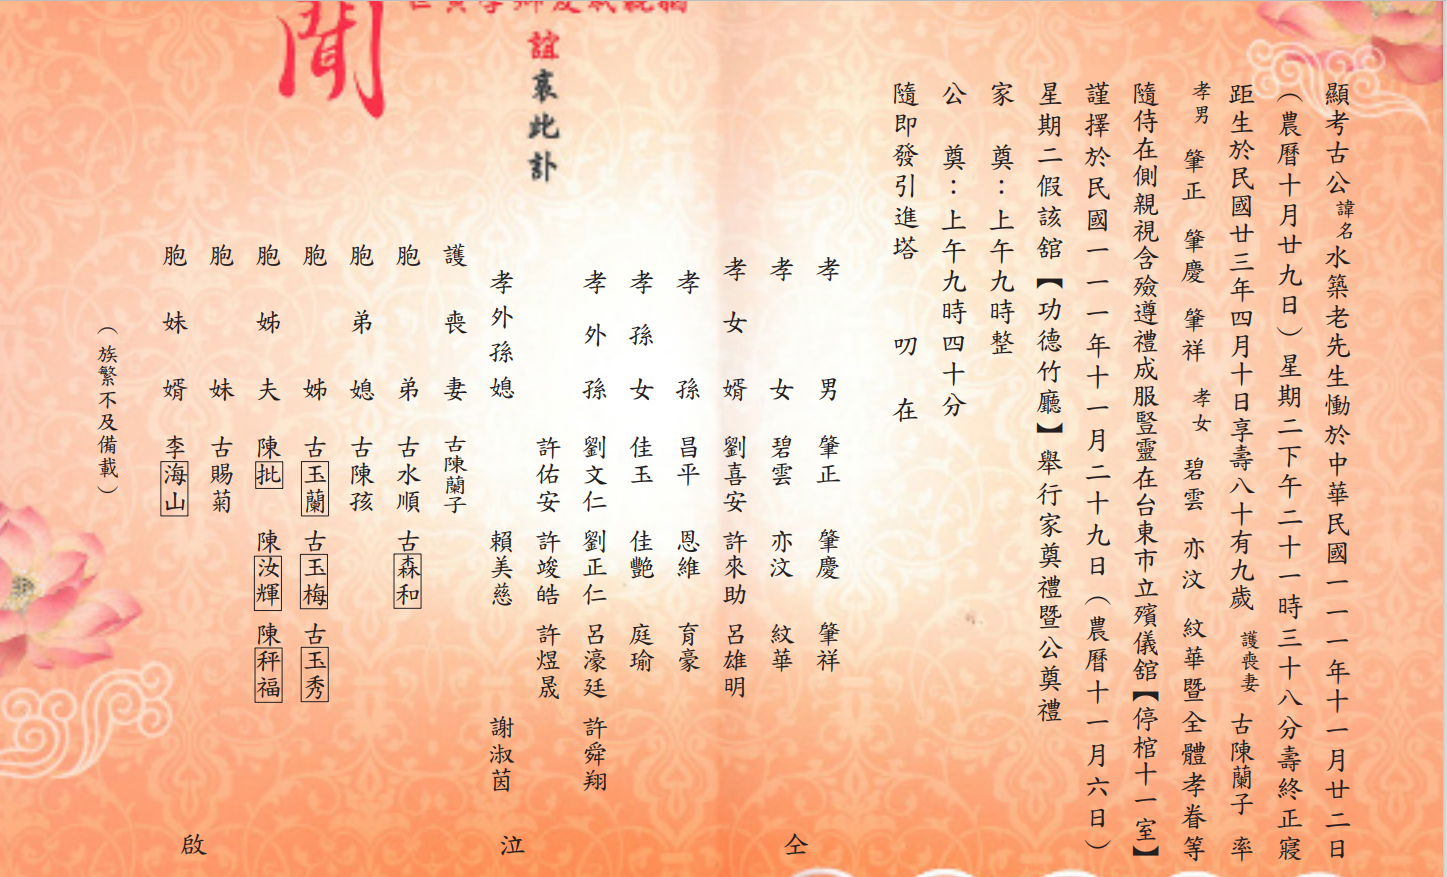 顯考古公諱名水築老先生慟於中華民國一一一年十一月廿二日
（農曆十月廿九日）星期二下午二十一時三十八分壽終正寢
距生於民國廿三年四月十日享壽八十有九歲 護喪妻 古陳蘭子 率
孝男 肇正 肇慶 肇祥 孝女 碧雲 亦汶 紋華暨全體孝眷等
隨侍在側親視含殮遵禮成服豎靈在台東市立殯儀舘【停棺十一室】
謹擇於民國一一一年十一月二十九日（農曆十一月六日）
星期二假該舘【功德竹廳】舉行家奠禮暨公奠禮
家 奠：上午九時整
公 奠：上午九時四十分
隨即發引進塔 叨 在
誼哀此訃
聞
孝 男 肇正 肇慶 肇祥
仝
孝 女 碧雲 亦汶 紋華
孝女婿 劉喜安 許來助 呂雄明
孝 孫 昌平 恩維 育豪
孝孫女 佳玉 佳艷 庭瑜
孝外孫 劉文仁 劉正仁 呂濠廷 許舜翔
許佑安 許竣皓 許煜晟
孝外孫媳 賴美慈 謝淑茵
泣
護喪妻 古陳蘭子
胞 弟 古水順 古森和
胞弟媳 古陳孩
胞 姊 古玉蘭 古玉梅 古玉秀
胞姊夫 陳批 陳汝輝 陳秤福
胞 妹 古賜菊
胞妹婿 李海山
啟
（族繁不及備載）